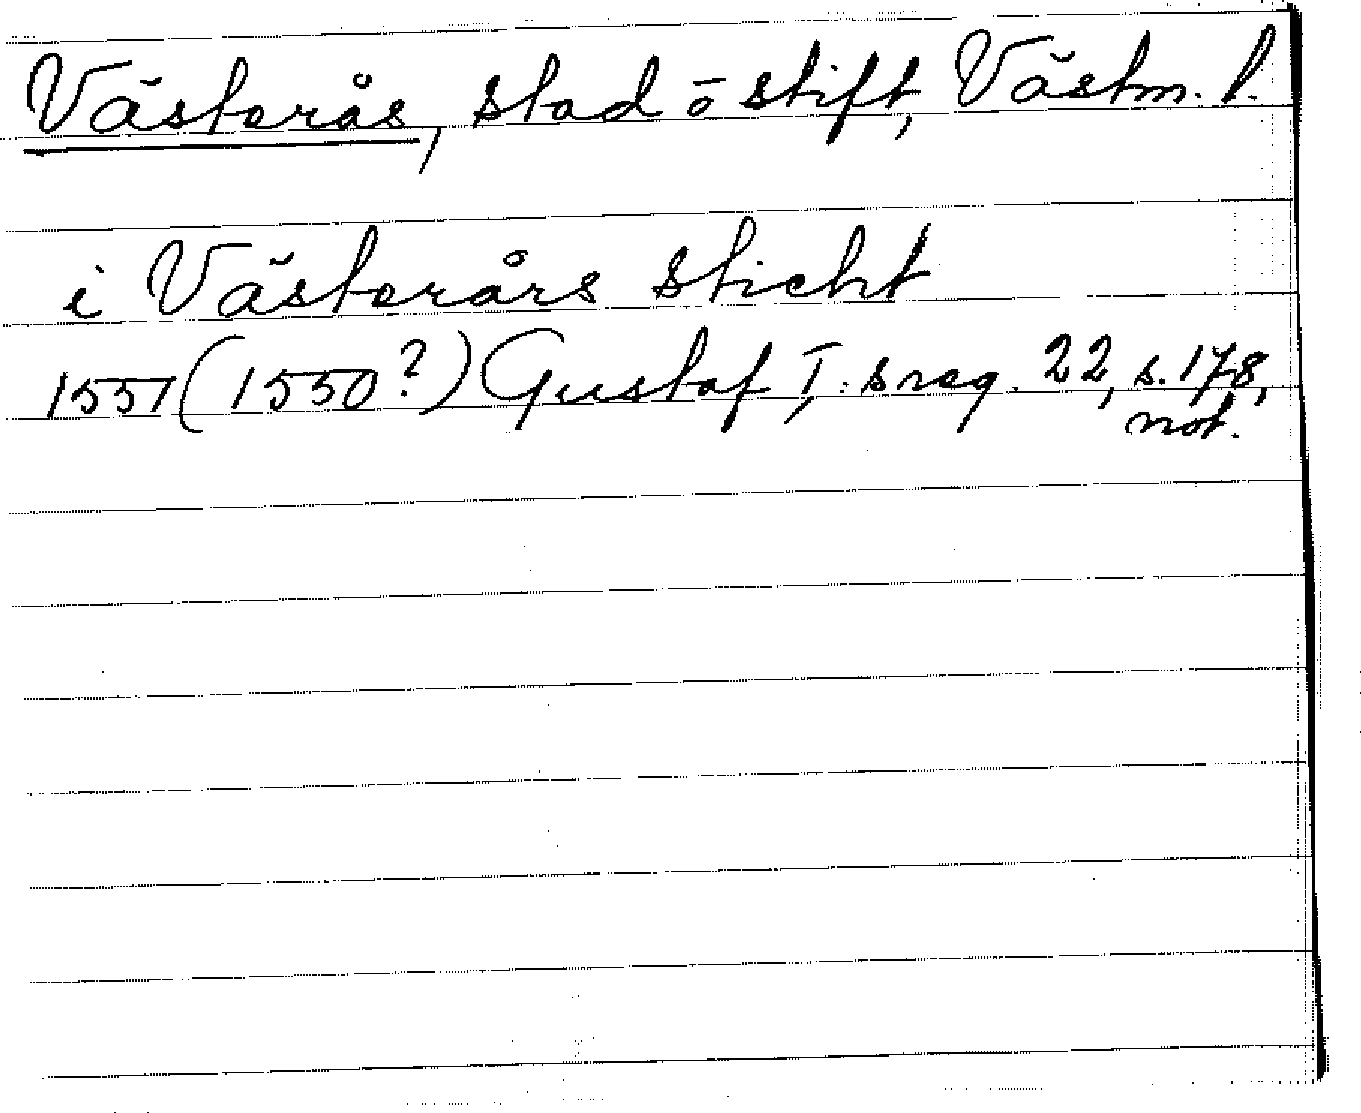 Västerås, stad ō stift, Västm. l.
i Västerårs sticht
1551 (1550?) Gustaf I:s reg. 22, s. 178,
not.